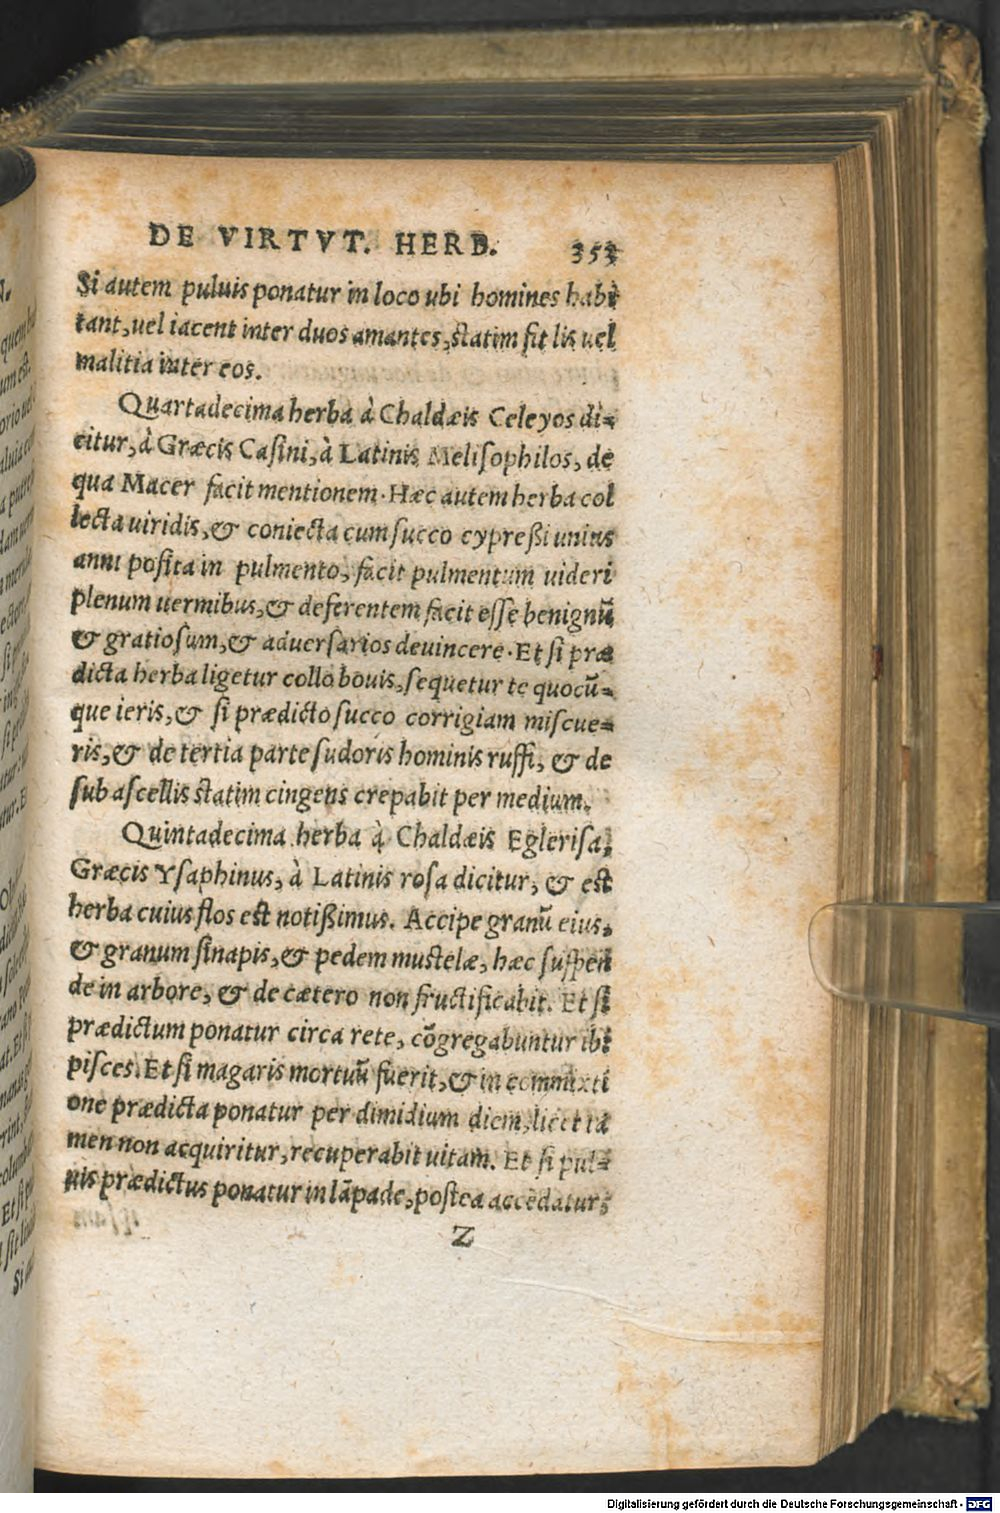 DE VIRTVT. HERB. 353
Si autem puluis ponatur in loco ubi homines habi
tant, uel iacent inter duos amantes, statim fit lis uel
malitia inter eos.
Quartadecima herba à Chaldæis Celeyos di=
citur, à Græcis Casini, à Latinis Melisophilos, de
qua Macer facit mentionem. Hæc autem herba col
lecta uiridis, & coniecta cum succo cypreßi unius
anni posita in pulmento, facit pulmentum uideri
plenum uermibus, & deferentem facit esse benignũ
& gratiosum, & aduersarios deuincere. Et si præ
dicta herba ligetur collo bouis, sequetur te quocũ=
que ieris, & si prædicto succo corrigiam miscue=
ris, & de tertia parte sudoris hominis ruffi, & de
sub ascellis statim cingens crepabit per medium.
Quintadecima herba à Chaldæis Eglerisa,
Græcis Ysaphinus, à Latinis rosa dicitur, & est
herba cuius flos est notißimus. Accipe granũ eius,
& granum sinapis, & pedem mustelæ, hæc suspen
de in arbore, & de cætero non fructificabit. Et si
prædictum ponatur circa rete, cõgregabuntur ibi
pisces. Et si magaris mortuũ fuerit, & in commixti
one prædicta ponatur per dimidium diem, licet ta
men non acquiritur, recuperabit uitam. Et si pul=
uis prædictus ponatur in lãpade, postea accẽdatur,
Z
Digitalisierung gefördert durch die Deutsche Forschungsgemeinschaft - DFG